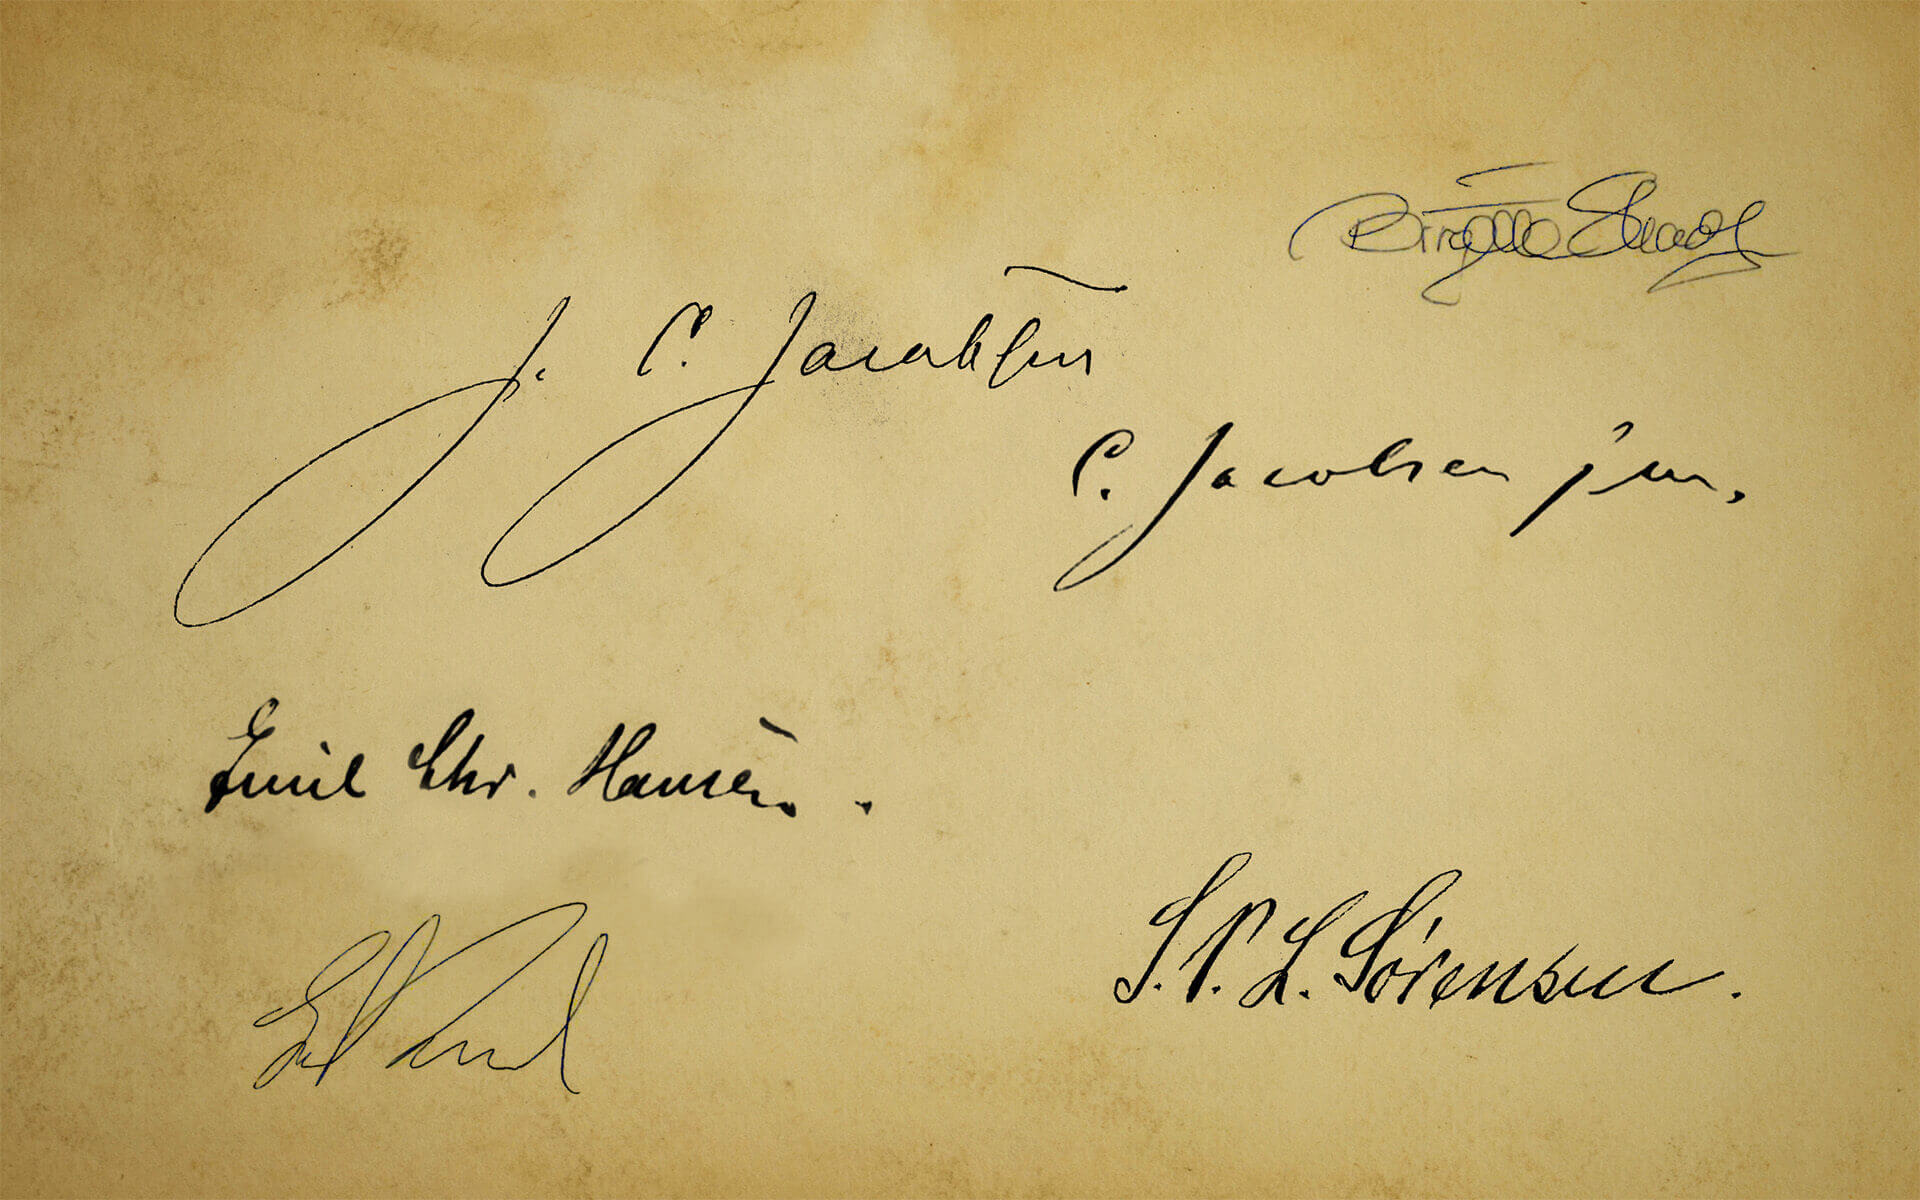 Birgitte Skadh
J. C. Jacobsen
C. Jacobsen jun.
Emil Chr. Hansen.
S. P. L. Sørensen.